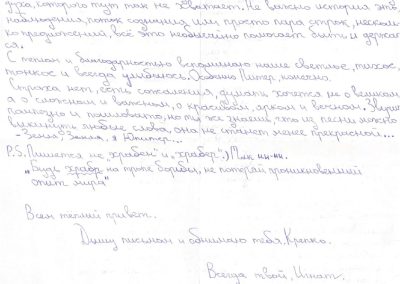 духа, которого тут так не хватает. Не важно история это,
наблюдения, поток сознания или просто пара строк, несколь-
ко предложений, всё это необычайно помогает быть и держать-
ся.
С теплом и благодарностью вспоминаю наше светлое, тихое,
тонкое и всегда улыбаюсь. Особенно Питер, конечно.
Страха нет, есть сожаления, думать хочется не о великом,
а о сложном и важном, о красивом, ярком и вечном. Звучит
и но ты же знаешь, что из песни можно
выкинуть любые слова, она не станет менее прекрасной...
- Земля, Земля, я Юпитер...
P.S. Пишется не „храбен" и „храбер".)
„Будь храбр на тропе борьбы, не потеряй проникновенный
опыт мира"
Всем тёплый привет.
Дышу письмом и обнимаю тебя, Крепко.
Всегда твой, Игнат.